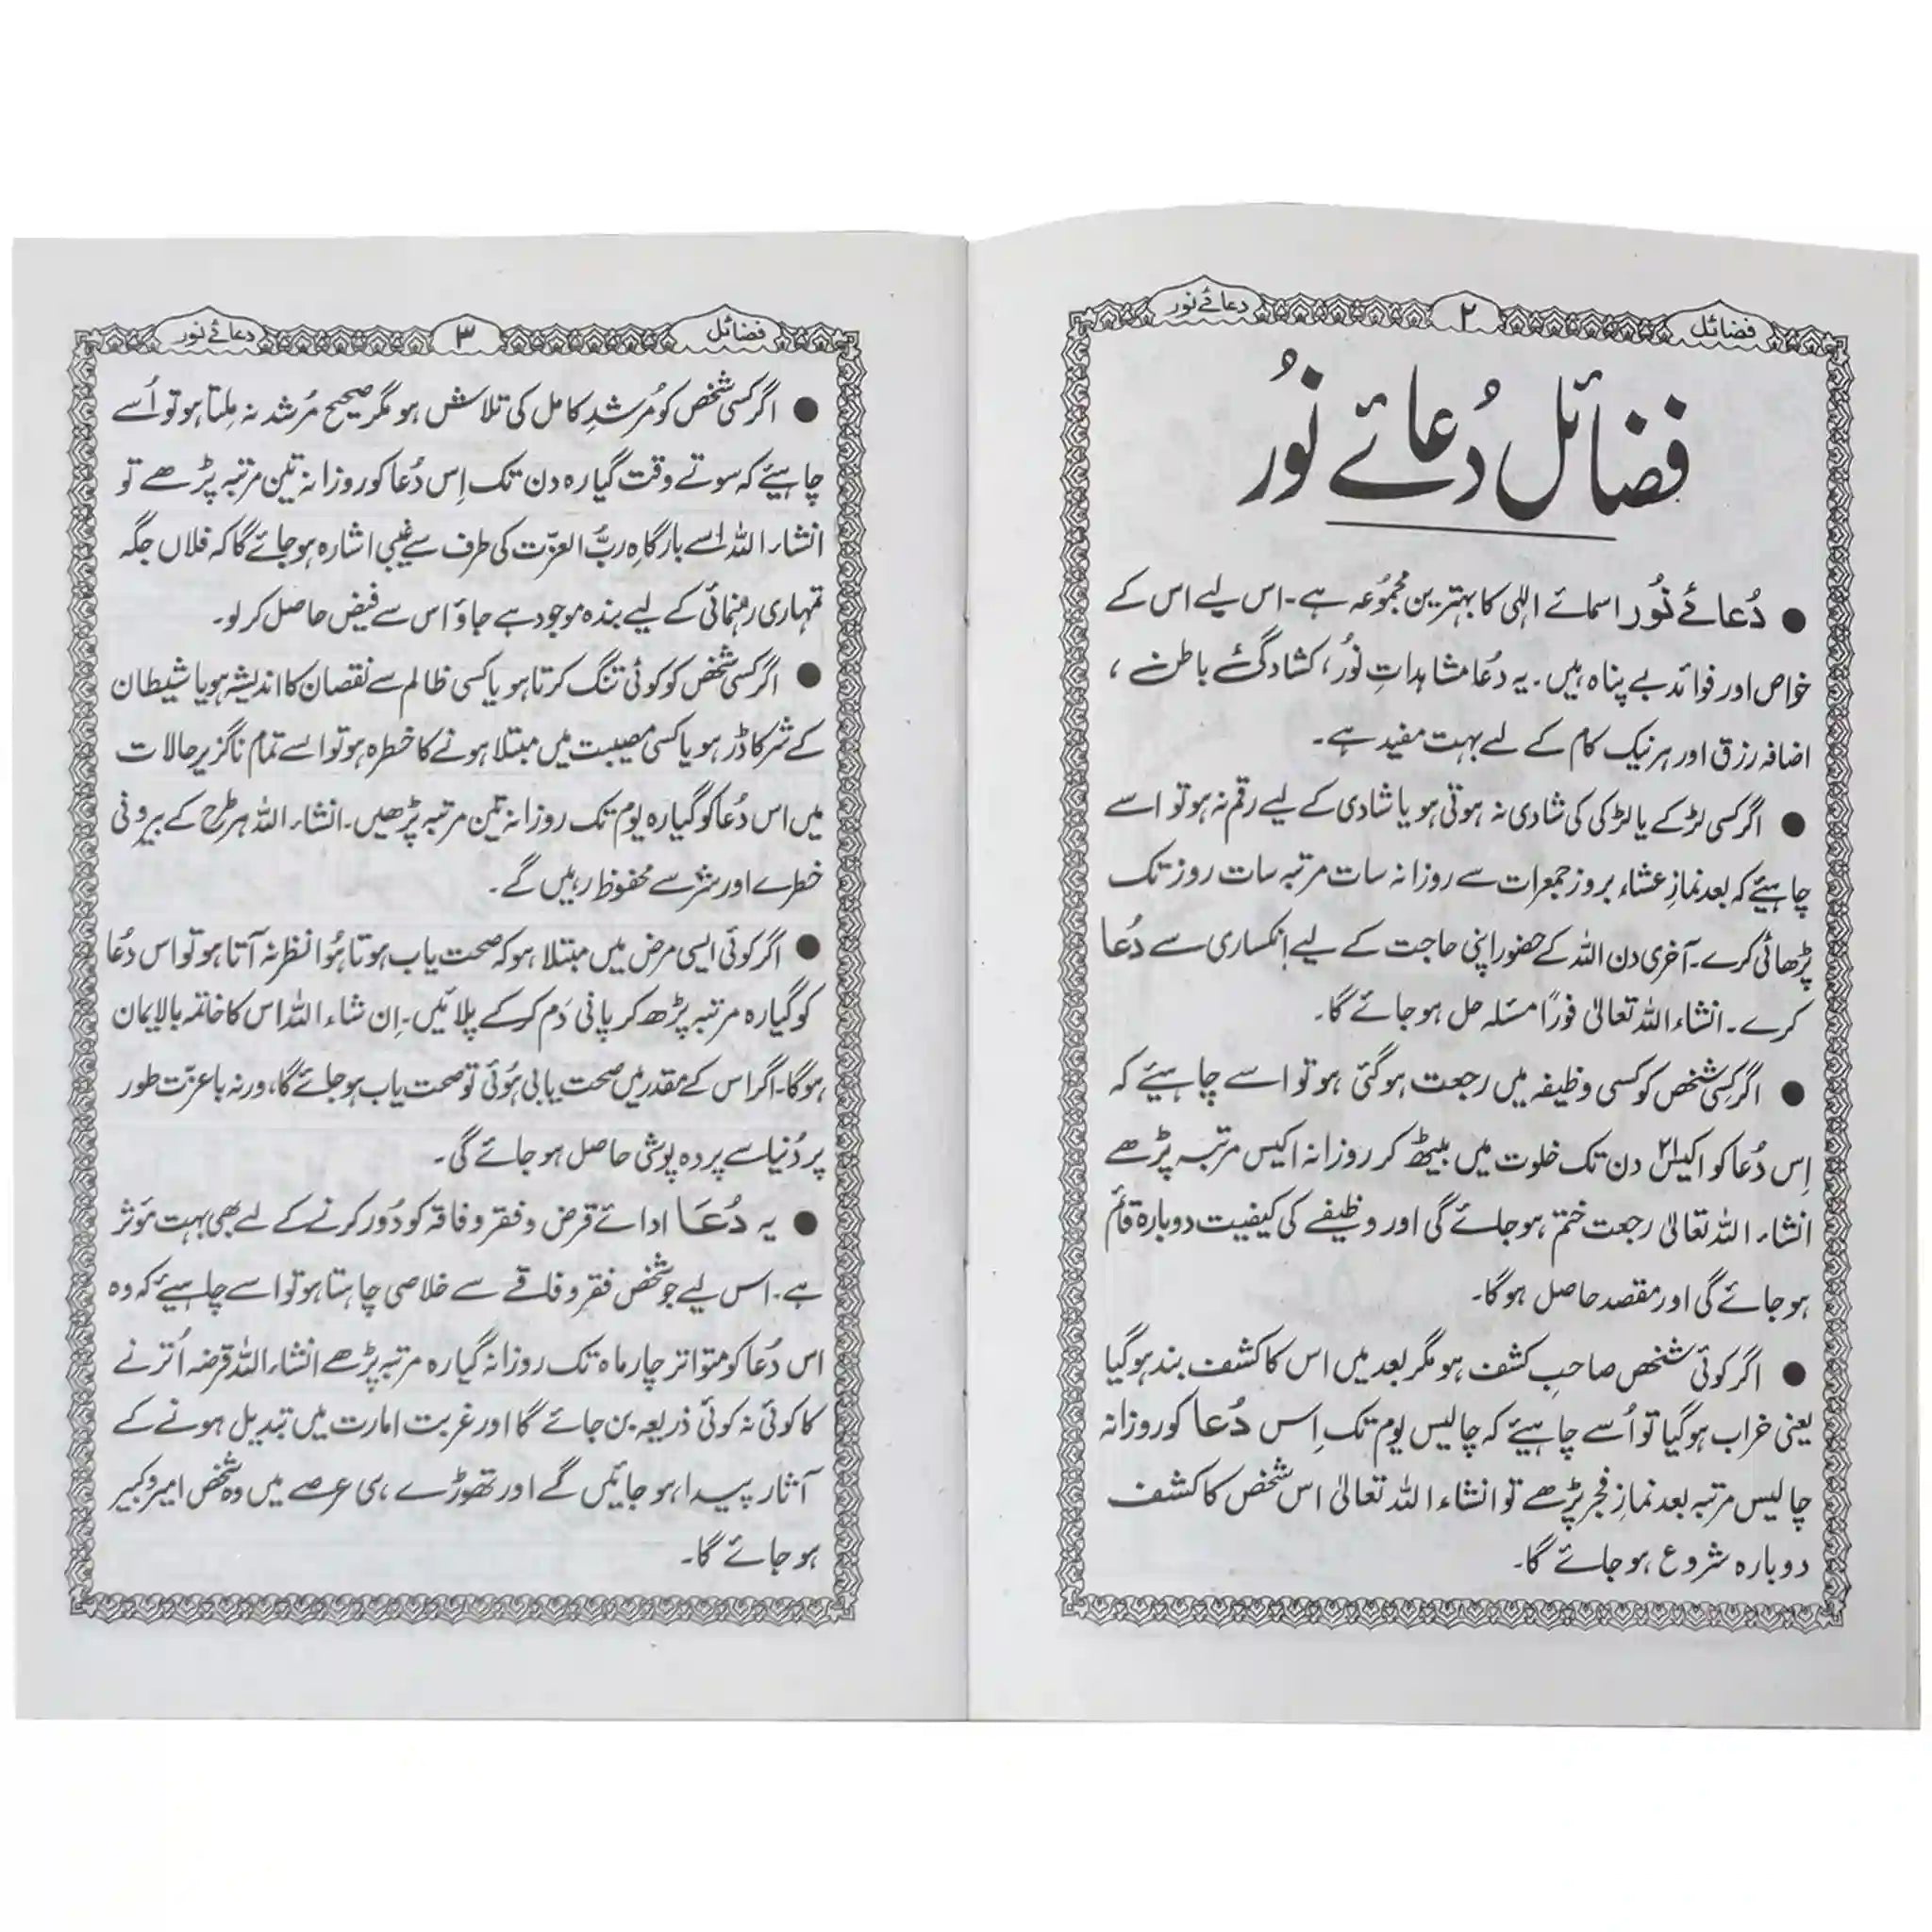 فضائل ۲ دعائے نور
فضائل دُعائے نوُر
● دُعائے نوُر اسمائے الٰہی کا بہترین مجموُعہ ہے۔ اس لیے اس کے
خواص اور فوائد بے پناہ ہیں۔ یہ دعُا مشاہداتِ نوُر، کشادگیٔ باطن ،
اضافہ رزق اور ہر نیک کام کے لیے بہت مفید ہے۔
● اگر کسی لڑکے یا لڑکی کی شادی نہ ہوتی ہو یا شادی کے لیے رقم نہ ہو تو اسے
چاہیئے کہ بعد نمازِ عشاء بروز جمعرات سے روزانہ سات مرتبہ سات روز تک
پڑھائی کرے۔ آخری دن اللہ کے حضور اپنی حاجت کے لیے اِنکساری سے دُعا
کرے۔ انشاء اللہ تعالیٰ فورًا مسئلہ حل ہو جائے گا۔
● اگر کسی شخص کو کسی وظیفہ میں رجعت ہو گئی ہو تو اسے چاہیئے کہ
اِس دُعا کو اکیس۲۱ دن تک خلوت میں بیٹھ کر روزانہ اکیس مرتبہ پڑھے
انشاء اللہ تعالیٰ رجعت ختم ہو جائے گی اور وظیفے کی کیفیت دوبارہ قائم
ہو جائے گی اور مقصد حاصل ہو گا۔
● اگر کوئی شخص صاحبِ کشف ہو مگر بعد میں اس کا کشف بند ہو گیا
یعنی خراب ہو گیا تو اُسے چاہیئے کہ چالیس یوم تک اِس دُعا کو روزانہ
چالیس مرتبہ بعد نمازِ فجر پڑھے تو انشاء اللہ تعالیٰ اس شخص کا کشف
دوبارہ شروع ہو جائے گا۔
فضائل ۳ دعائے نور
● اگر کسی شخص کو مُرشدِ کامل کی تلاش ہو مگر صحیح مُرشد نہ مِلتا ہو تو اُسے
چاہیئے کہ سوتے وقت گیارہ دن تک اِس دُعا کو روزانہ تین مرتبہ پڑھے تو
انشاء اللہ اسے بارگاہِ ربُّ العزّت کی طرف سے غیبی اشارہ ہو جائے گا کہ فلاں جگہ
تمہاری رہنمائی کے لیے بندہ موجود ہے جاؤ اس سے فیض حاصل کر لو۔
● اگر کسی شخص کو کوئی تنگ کرتا ہو یا کسی ظالم سے نقصان کا اندیشہ ہو یا شیطان
کے شر کا ڈر ہو یا کسی مصیبت میں مبتلا ہونے کا خطرہ ہو تو اسے تمام ناگزیر حالات
میں اس دُعا کو گیارہ یوم تک روزانہ تین مرتبہ پڑھیں۔ انشاء اللہ ہر طرح کے بیرونی
خطرے اور شر سے محفوظ رہیں گے۔
● اگر کوئی ایسی مرض میں مبتلا ہو کہ صحت یاب ہوتا ہُوا نظر نہ آتا ہو تو اس دعُا
کو گیارہ مرتبہ پڑھ کر پانی دَم کر کے پلائیں۔ اِن شاء اللہ اس کا خاتمہ بالایمان
ہو گا۔ اگر اس کے مقدر میں صحت یابی ہُوئی تو صحت یاب ہو جائے گا، ورنہ باعزّت طور
پر دُنیا سے پردہ پوشی حاصل ہو جائے گی۔
● یہ دُعَا ادائے قرض و فقر و فاقہ کو دُور کرنے کے لیے بھی بہت مؤثر
ہے۔ اس لیے جو شخص فقر و فاقے سے خلاصی چاہتا ہو تو اسے چاہیئے کہ وہ
اس دُعا کو متواتر چار ماہ تک روزانہ گیارہ مرتبہ پڑھے انشاء اللہ قرضہ اُترنے
کا کوئی نہ کوئی ذریعہ بن جائے گا اور غربت امارت میں تبدیل ہونے کے
آثار پیدا ہو جائیں گے اور تھوڑے ہی عرصے میں وہ شخص امیر و کبیر
ہو جائے گا۔